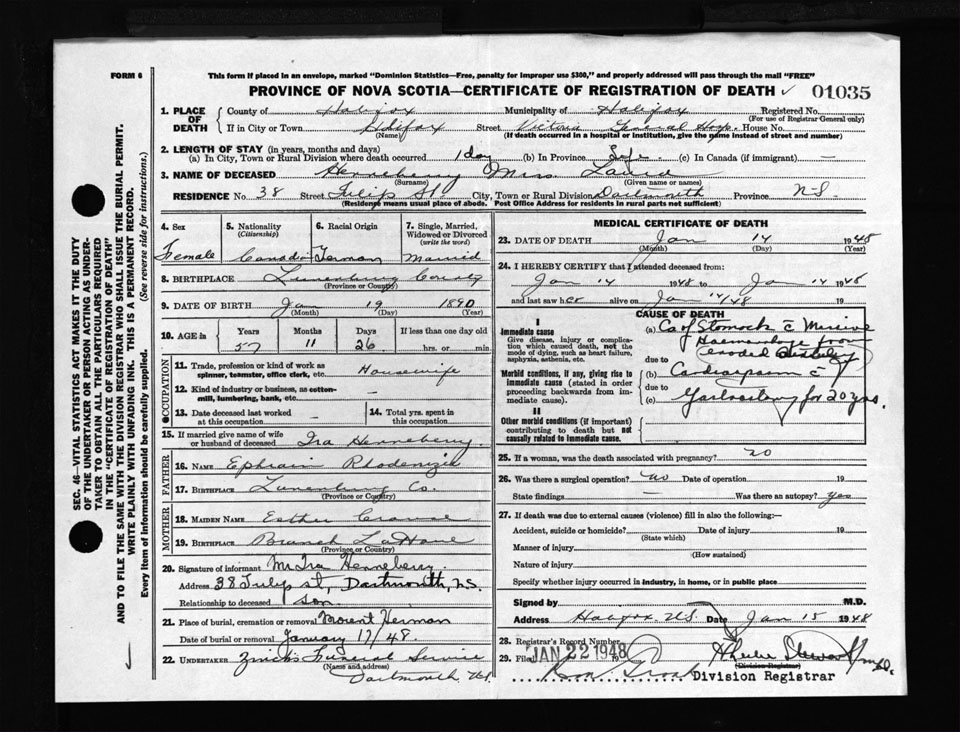 FORM 6
This form if placed in an envelope, marked "Dominion Statistics—Free, penalty for improper use $300," and properly addressed will pass through the mail "FREE"
PROVINCE OF NOVA SCOTIA—CERTIFICATE OF REGISTRATION OF DEATH ✓ 01035
SEC. 46—VITAL STATISTICS ACT MAKES IT THE DUTY
OF THE UNDERTAKER OR PERSON ACTING AS UNDER-
TAKER TO OBTAIN ALL THE PARTICULARS REQUIRED
IN THE "CERTIFICATE OF REGISTRATION OF DEATH"
AND TO FILE THE SAME WITH THE DIVISION REGISTRAR WHO SHALL ISSUE THE BURIAL PERMIT.
WRITE PLAINLY WITH UNFADING INK. THIS IS A PERMANENT RECORD.
Every item of information should be carefully supplied. (See reverse side for instructions.)
1. PLACE OF DEATH
County of Halifax Municipality of Halifax Registered No.
(For use of Registrar General only)
If in City or Town Halifax Street Victoria General Hosp. House No.
(Name) (If death occurred in a hospital or institution, give the name instead of street and number)
2. LENGTH OF STAY (in years, months and days)
(a) In City, Town or Rural Division where death occurred 1 day (b) In Province Life (c) In Canada (if immigrant) —
3. NAME OF DECEASED Henneberry Mrs
(Surname) (Given name or names)
RESIDENCE No. 38 Street Tulip St City, Town or Rural Division Dartmouth Province N-S.
(Residence means usual place of abode. Post Office Address for residents in rural parts not sufficient)
4. Sex
Female
5. Nationality
(Citizenship)
6. Racial Origin
German
7. Single, Married, Widowed or Divorced
(write the word)
Married
8. BIRTHPLACE Lunenburg County
(Province or Country)
9. DATE OF BIRTH Jan 19 1890
(Month) (Day) (Year)
10. AGE in Years Months Days If less than one day old
57 11 26 hrs. or min.
OCCUPATION
11. Trade, profession or kind of work as spinner, teamster, office clerk, etc. Housewife
12. Kind of industry or business, as cotton-mill, lumbering, bank, etc. —
13. Date deceased last worked at this occupation —
14. Total yrs. spent in this occupation
15. If married give name of wife or husband of deceased Ira Henneberry
FATHER
16. NAME Ephraim
17. BIRTHPLACE Lunenburg Co.
(Province or Country)
MOTHER
18. MAIDEN NAME Esther
19. BIRTHPLACE Branch LaHave
(Province or Country)
20. Signature of informant Mr Ira Henneberry
Address 38 Tulip st, Dartmouth, N.S.
Relationship to deceased son
21. Place of burial, cremation or removal Mount Herman
Date of burial or removal January 17/48
22. UNDERTAKER Funeral Service
(Name and address)
Dartmouth N.S.
MEDICAL CERTIFICATE OF DEATH
23. DATE OF DEATH Jan 14 1948
(Month) (Day) (Year)
24. I HEREBY CERTIFY that I attended deceased from:
Jan 14 1948 to Jan 14 1948
and last saw her alive on Jan 14/48 19
CAUSE OF DEATH
I
Immediate cause
Give disease, injury or complication which caused death, not the mode of dying, such as heart failure, asphyxia, asthenia, etc.
(a) Ca of Stomach c̄ Massive
Haemorrhage from
due to eroded
Morbid conditions, if any, giving rise to immediate cause (stated in order proceeding backwards from immediate cause)
(b) Cardiospasm c̄
due to
(c) for 20 yrs.
II
Other morbid conditions (if important) contributing to death but not causally related to immediate cause.
25. If a woman, was the death associated with pregnancy? no
26. Was there a surgical operation? no Date of operation 19
State findings — Was there an autopsy? yes
27. If death was due to external causes (violence) fill in also the following:—
Accident, suicide or homicide? Date of injury 19
(State which)
Manner of injury
(How sustained)
Nature of injury
Specify whether injury occurred in industry, in home, or in public place
Signed by M.D.
Address Halifax N.S. Date Jan 15 1948
28. Registrar's Record Number
29. Filed JAN 22 1948 19
(Division Registrar)
Division Registrar